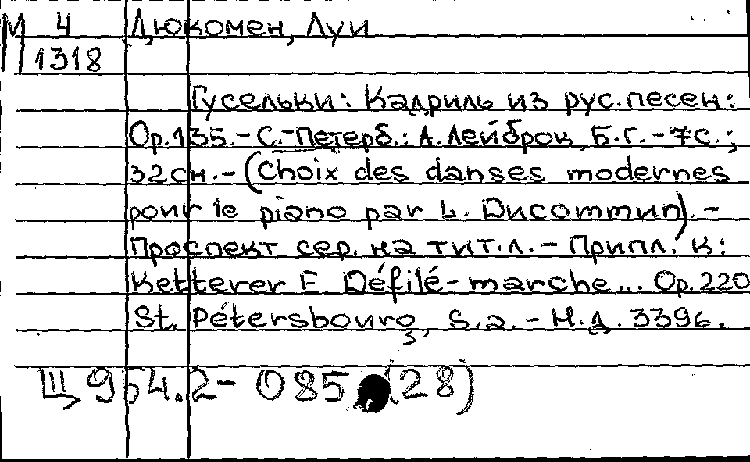 М 4 Дюкомен, Луи
1318
Гусельки: Кадриль из рус.песен:
Ор.135.-С.-Петерб.: А.Лейброк, Б.Г.-7с.;
32см.-(Choix des danses modernes
pour le piano par L. Ducommun).-
Проспект сер. на тит.л.-Припл. к:
Ketterer E. Défilé-marche... Op.220
St. Pétersbourg, S.a.-Н.д. 3396.
Щ954.2-085 (28)